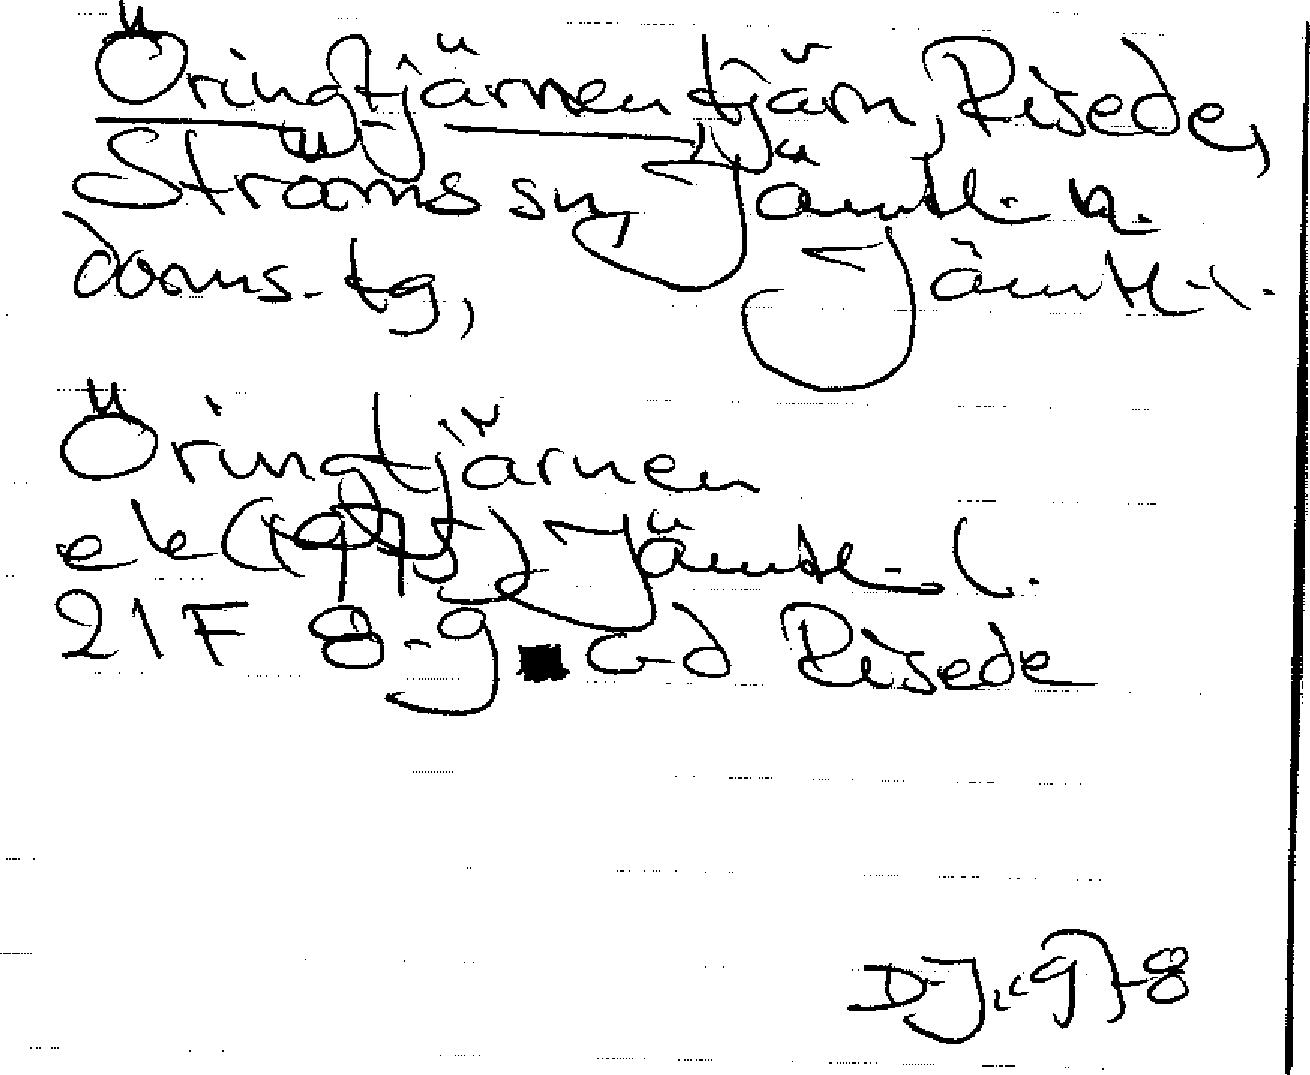 Öringtjärnen tjärn, Risede,
Ströms sn, Jämtl. n.
doms. tg, Jämtl. l.
Öringtjärnen
ek (1975) Jämtl. l.
21F 8-g c-d Risede